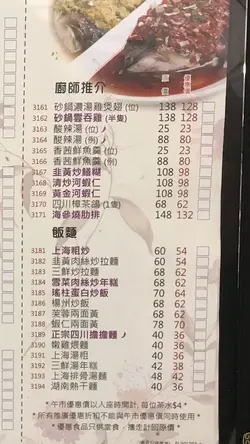 廚師推介
3161 砂鍋濃湯雞煲翅 (位) 138 128
3162 砂鍋雲吞雞 (半隻) 138 128
3163 酸辣湯 (位) 30 28
3164 酸辣湯 (例) 88 80
3165 香茜鮮魚羹 (位) 30 28
3166 香茜鮮魚羹 (例) 88 80
3167 韭黃炒鱔糊 108 98
3168 清炒河蝦仁 108 98
3169 黃金河蝦仁 108 98
3170 四川樟茶鴿 (1隻) 68 62
3171 海參燒肋排 148 132
飯麵
3181 上海粗炒 60 54
3182 韭黃肉絲炒拉麵 60 54
3183 三鮮炒拉麵 68 62
3184 雪菜肉絲炒年糕 60 54
3185 瑤柱蛋白炒飯 70 64
3186 楊州炒飯 68 62
3187 芙蓉兩面黃 68 62
3188 蝦仁兩面黃 78 70
3189 正宗四川擔擔麵 42 38
3190 嫩雞煨麵 42 38
3191 上海湯粗 42 38
3192 三鮮湯年糕 42 38
3193 上海排骨湯麵 42 38
3194 湖南熱干麵 42 38
*午市優惠價以入座時間計，每位茶水$4*
*所有推廣優惠折扣不能與午市優惠價同時使用*
*優惠食品只供堂食，攜走計回原價*